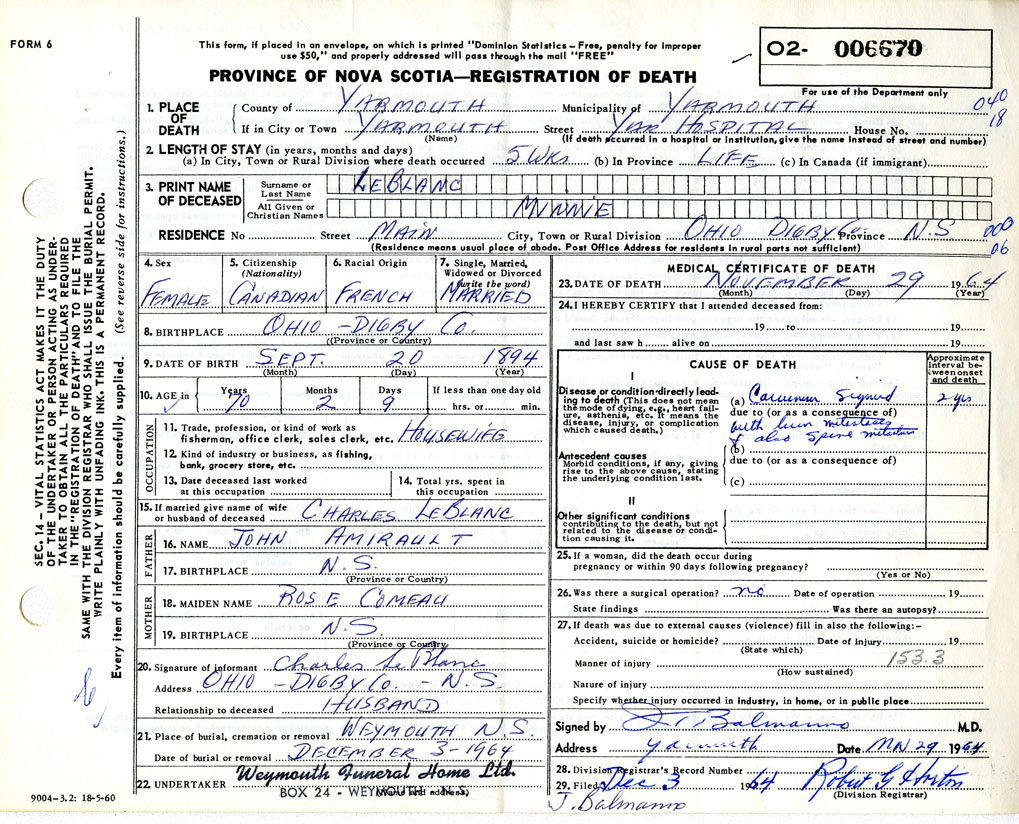 FORM 6
This form, if placed in an envelope, on which is printed "Dominion Statistics – Free, penalty for improper
use $50," and properly addressed will pass through the mail "FREE"
PROVINCE OF NOVA SCOTIA—REGISTRATION OF DEATH
O2- 006670
For use of the Department only
040
18
1. PLACE OF DEATH
County of YARMOUTH Municipality of YARMOUTH
If in City or Town YARMOUTH Street YAR HOSPITAL House No.
(Name) (If death occurred in a hospital or institution, give the name instead of street and number)
2. LENGTH OF STAY (in years, months and days)
(a) In City, Town or Rural Division where death occurred 5 WKS (b) In Province LIFE (c) In Canada (if immigrant)
3. PRINT NAME OF DECEASED
Surname or Last Name LEBLANC
All Given or Christian Names MINNIE
RESIDENCE No Street MAIN City, Town or Rural Division OHIO DIGBY Co. Province N.S
(Residence means usual place of abode. Post Office Address for residents in rural parts not sufficient)
000
06
4. Sex FEMALE
5. Citizenship (Nationality) CANADIAN
6. Racial Origin FRENCH
7. Single, Married, Widowed or Divorced (write the word) MARRIED
8. BIRTHPLACE OHIO - DIGBY Co.
(Province or Country)
9. DATE OF BIRTH SEPT. 20 1894
(Month) (Day) (Year)
10. AGE in Years 70 Months 2 Days 9 If less than one day old hrs. or min.
OCCUPATION
11. Trade, profession, or kind of work as
fisherman, office clerk, sales clerk, etc. HOUSEWIFE
12. Kind of industry or business, as fishing,
bank, grocery store, etc.
13. Date deceased last worked at this occupation
14. Total yrs. spent in this occupation
15. If married give name of wife
or husband of deceased CHARLES LEBLANC
FATHER
16. NAME JOHN AMIRAULT
17. BIRTHPLACE N.S.
(Province or Country)
MOTHER
18. MAIDEN NAME ROSE COMEAU
19. BIRTHPLACE N.S.
(Province or Country)
20. Signature of informant Charles Le Blanc
Address OHIO - DIGBY Co. - N.S.
Relationship to deceased HUSBAND
21. Place of burial, cremation or removal WEYMOUTH N.S.
Date of burial or removal DECEMBER 3-1964
22. UNDERTAKER Weymouth Funeral Home Ltd.
BOX 24 - WEYMOUTH N.S.
(Name and address)
MEDICAL CERTIFICATE OF DEATH
23. DATE OF DEATH NOVEMBER 29 1964
(Month) (Day) (Year)
24. I HEREBY CERTIFY that I attended deceased from:
19 to 19
and last saw h alive on 19
CAUSE OF DEATH
Approximate interval between onset and death
I
Disease or condition directly leading to death (This does not mean the mode of dying, e.g., heart failure, asthenia, etc. It means the disease, injury, or complication which caused death.)
(a) Sigmoid 2 yrs
due to (or as a consequence of)
with
& also Spine
(b)
Antecedent causes
Morbid conditions, if any, giving rise to the above cause, stating the underlying condition last.
due to (or as a consequence of)
(c)
II
Other significant conditions
contributing to the death, but not related to the disease or condition causing it.
25. If a woman, did the death occur during
pregnancy or within 90 days following pregnancy?
(Yes or No)
26. Was there a surgical operation? no Date of operation 19
State findings Was there an autopsy?
27. If death was due to external causes (violence) fill in also the following:–
Accident, suicide or homicide? Date of injury 19
(State which)
153.3
Manner of injury
(How sustained)
Nature of injury
Specify whether injury occurred in Industry, in home, or in public place
Signed by J. Balmanno M.D.
Address Yarmouth Date 29 1964
28. Division Registrar's Record Number
29. Filed Dec 3 1964 Robert G Horton
(Division Registrar)
J. Balmanno
9004–3.2: 18-5-60
SEC. 14 – VITAL STATISTICS ACT MAKES IT THE DUTY
OF THE UNDERTAKER OR PERSON ACTING AS UNDER-
TAKER TO OBTAIN ALL THE PARTICULARS REQUIRED
IN THE "REGISTRATION OF DEATH" AND TO FILE THE
SAME WITH THE DIVISION REGISTRAR WHO SHALL ISSUE THE BURIAL PERMIT.
WRITE PLAINLY WITH UNFADING INK. THIS IS A PERMANENT RECORD.
Every item of information should be carefully supplied. (See reverse side for instructions.)